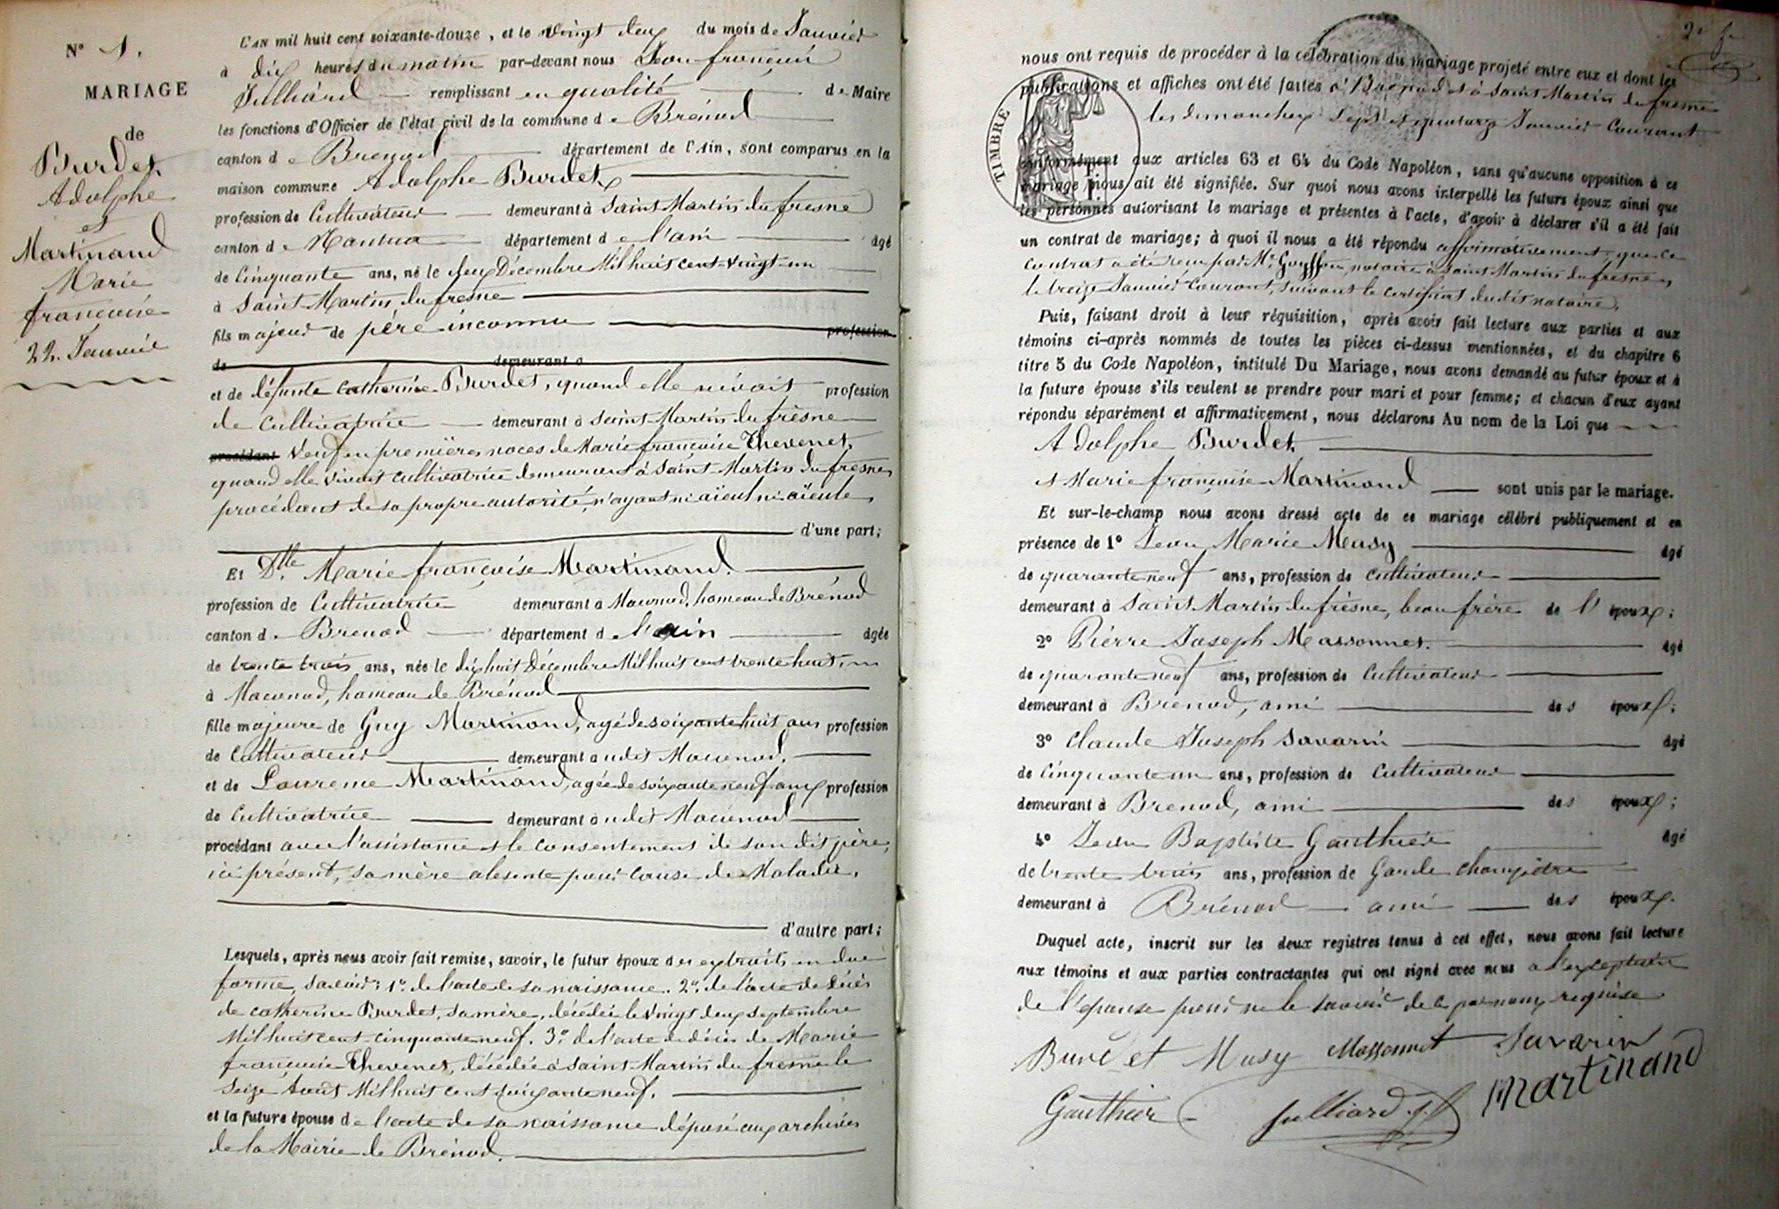 N° 1.
MARIAGE
de
Burdet
Adolphe
et
Martinand
Marie
françoise
22. Janvier
L'AN mil huit cent soixante-douze, et le vingt deux du mois de Janvier
à dix heures du matin par-devant nous Jean françois
Julliard remplissant en qualité de Maire
les fonctions d'Officier de l'état civil de la commune de Brénod
canton de Brenod département de l'Ain, sont comparus en la
maison commune Adolphe Burdet
profession de Cultivateur demeurant à Saint Martin du fresne
canton de Nantua département de l'ain âgé
de Cinquante ans, né le deux Décembre Mil huit cent vingt-un
à Saint Martin du fresne
fils majeur de père inconnu profession
de demeurant à
et de défunte Catherine Burdet, quand elle vivait profession
de Cultivatrice demeurant à Saint Martin du fresne
procédant Veuf en premières noces de Marie françoise Thevenet,
quand elle vivait cultivatrice demeurant à Saint Martin du fresne,
procédant de sa propre autorité, n'ayant ni aïeul ni aïeule,
d'une part;
Et Dlle Marie françoise Martinand.
profession de Cultivatrice demeurant à Maconod, hameau de Brénod
canton de Brenod département de l'ain âgée
de trente trois ans, née le dix huit Décembre Mil huit cent trente huit,
à Maconod, hameau de Brénod
fille majeure de Guy Martinand, agé de soixante huit ans profession
de Cultivateur demeurant audit Maconod,
et de Laurence Martinand, agée de soixante neuf ans profession
de Cultivatrice demeurant audit Maconod
procédant avec l'assistance et le consentement de son dit père,
ici présent, sa mère absente pour cause de Maladie,
d'autre part;
Lesquels, après nous avoir fait remise, savoir, le futur époux des extraits en due
forme, savoir: 1° de l'acte de sa naissance. 2° de l'acte de décès
de Catherine Burdet, sa mère, décédée le vingt deux septembre
Mil huit cent cinquante neuf. 3° de l'acte de décès de Marie
françoise Thevenet, décédée à Saint Martin du fresne le
seize Août Mil huit cent soixante neuf.
et la future épouse de l'acte de sa naissance déposé aux archives
de la Mairie de Brénod.
2e f.
nous ont requis de procéder à la célébration du mariage projeté entre eux et dont les
publications et affiches ont été faites à Brenod et à Saint Martin du fresne
les dimanches Sept et quatorze Janvier Courant
TIMBRE
conformément aux articles 63 et 64 du Code Napoléon, sans qu'aucune opposition à ce
mariage nous ait été signifiée. Sur quoi nous avons interpellé les futurs époux ainsi que
les personnes autorisant le mariage et présentes à l'acte, d'avoir à déclarer s'il a été fait
un contrat de mariage; à quoi il nous a été répondu affirmativement, que ce
Contrat a été reçu par Me Gouffon, notaire à Saint Martin du fresne,
le treize Janvier Courant, suivant le certificat dudit notaire.
Puis, faisant droit à leur réquisition, après avoir fait lecture aux parties et aux
témoins ci-après nommés de toutes les pièces ci-dessus mentionnées, et du chapitre 6
titre 5 du Code Napoléon, intitulé Du Mariage, nous avons demandé au futur époux et à
la future épouse s'ils veulent se prendre pour mari et pour femme; et chacun d'eux ayant
répondu séparément et affirmativement, nous déclarons Au nom de la Loi que
Adolphe Burdet
et Marie françoise Martinand sont unis par le mariage.
Et sur-le-champ nous avons dressé acte de ce mariage célébré publiquement et en
présence de 1° Jean Marie Musy âgé
de quarante neuf ans, profession de Cultivateur
demeurant à Saint Martin du fresne, beau frère de l'époux;
2° Pierre Joseph Massonnet. âgé
de quarante neuf ans, profession de Cultivateur
demeurant à Brenod, ami des époux;
3° Claude Joseph Savarin âgé
de Cinquante un ans, profession de Cultivateur
demeurant à Brenod, ami des époux;
4° Jean Baptiste Gauthier âgé
de trente trois ans, profession de Garde champêtre
demeurant à Brénod ami des époux.
Duquel acte, inscrit sur les deux registres tenus à cet effet, nous avons fait lecture
aux témoins et aux parties contractantes qui ont signé avec nous à l'exception
de l'épouse pour ne le savoir de ce par nous requise
Burdet Musy Massonnet Savarin
Gauthier Julliard Martinand